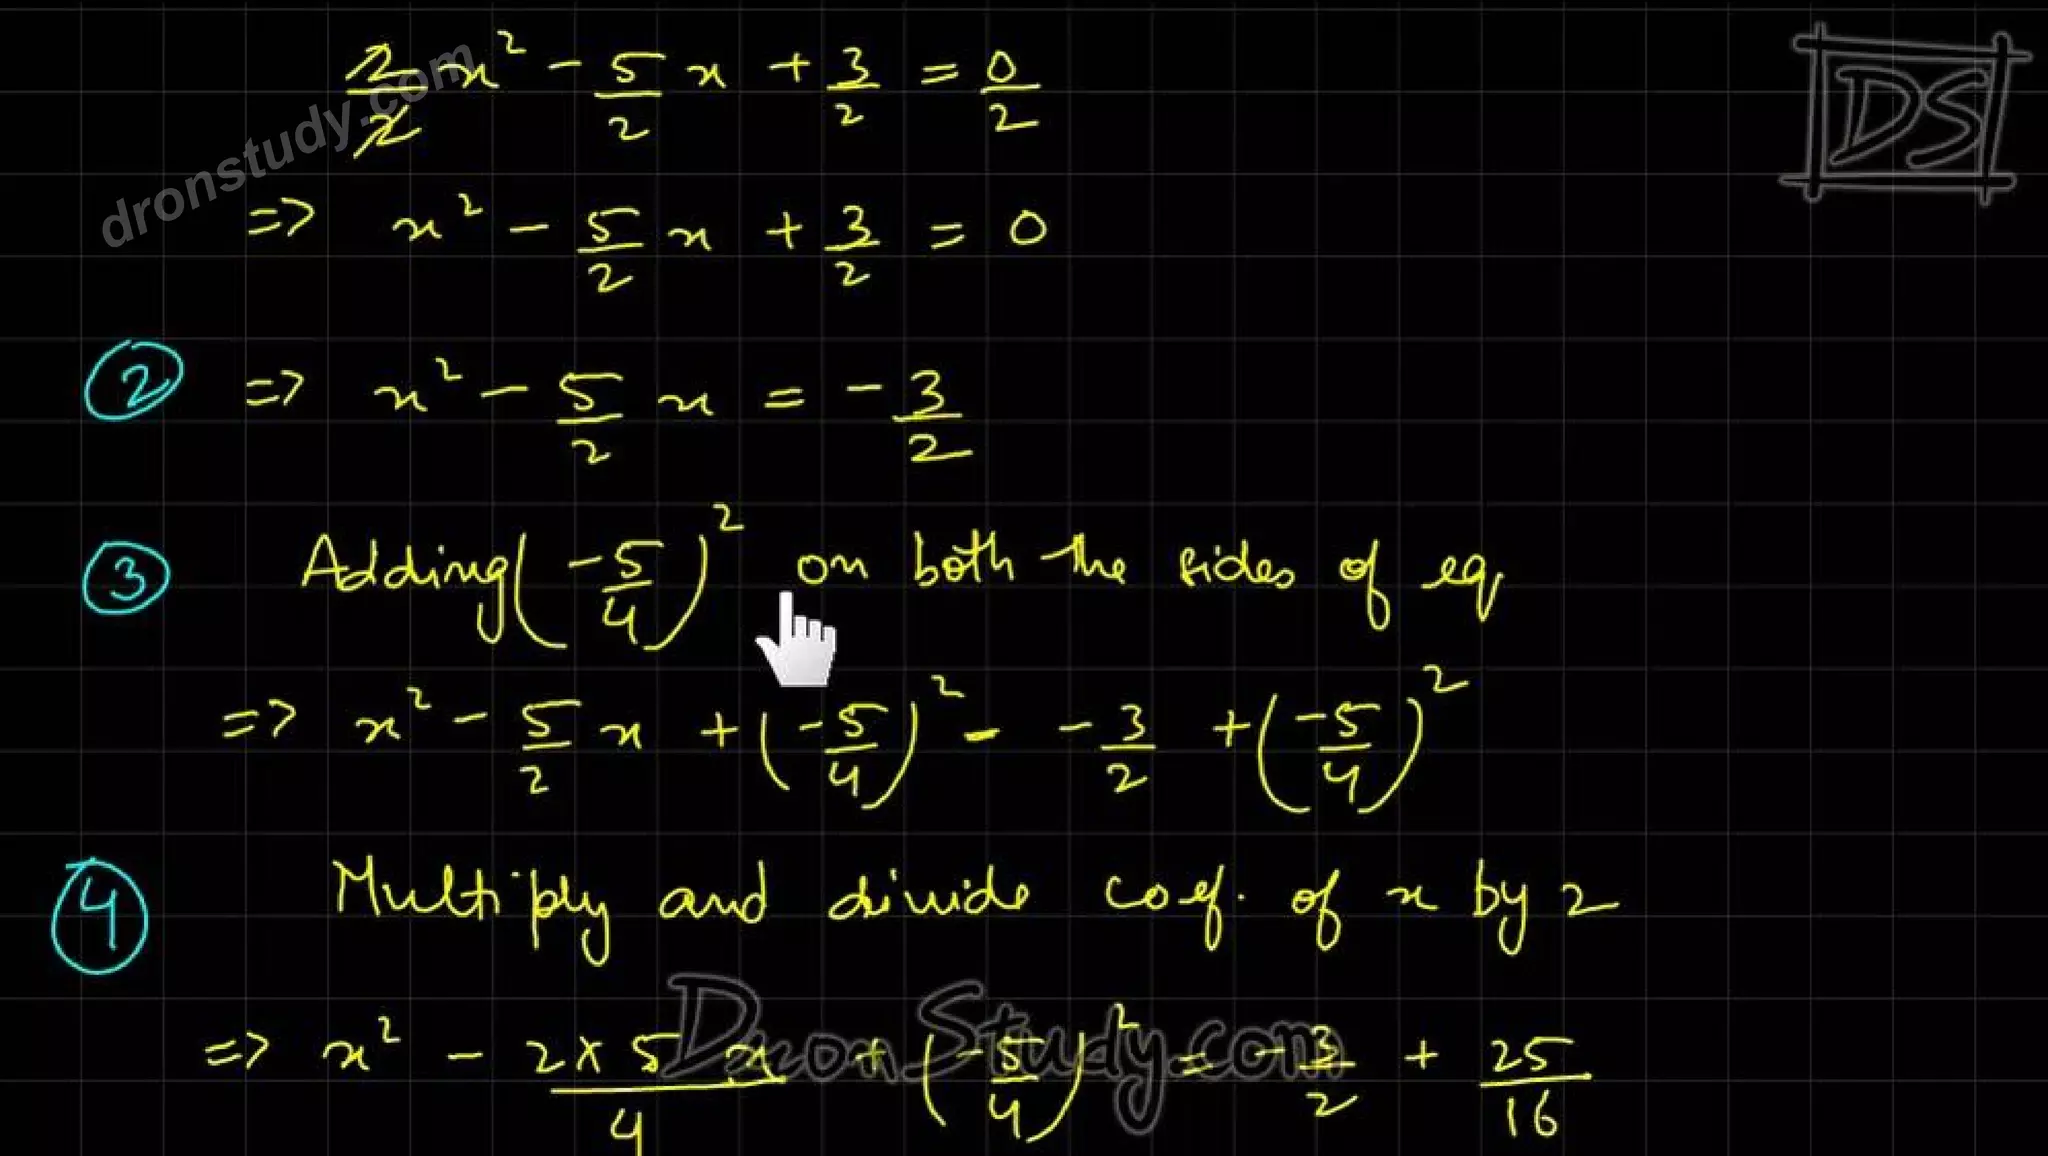 2/2 x² - 5/2 x + 3/2 = 0/2
dronstudy.com
DS
=> x² - 5/2 x + 3/2 = 0
② => x² - 5/2 x = - 3/2
③ Adding (-5/4)² on both the sides of eq
=> x² - 5/2 x + (-5/4)² - - 3/2 + (-5/4)²
④ Multiply and divide coef. of x by 2
=> x² - 2×5 x/4 + (-5/4)² = - 3/2 + 25/16
DronStudy.com